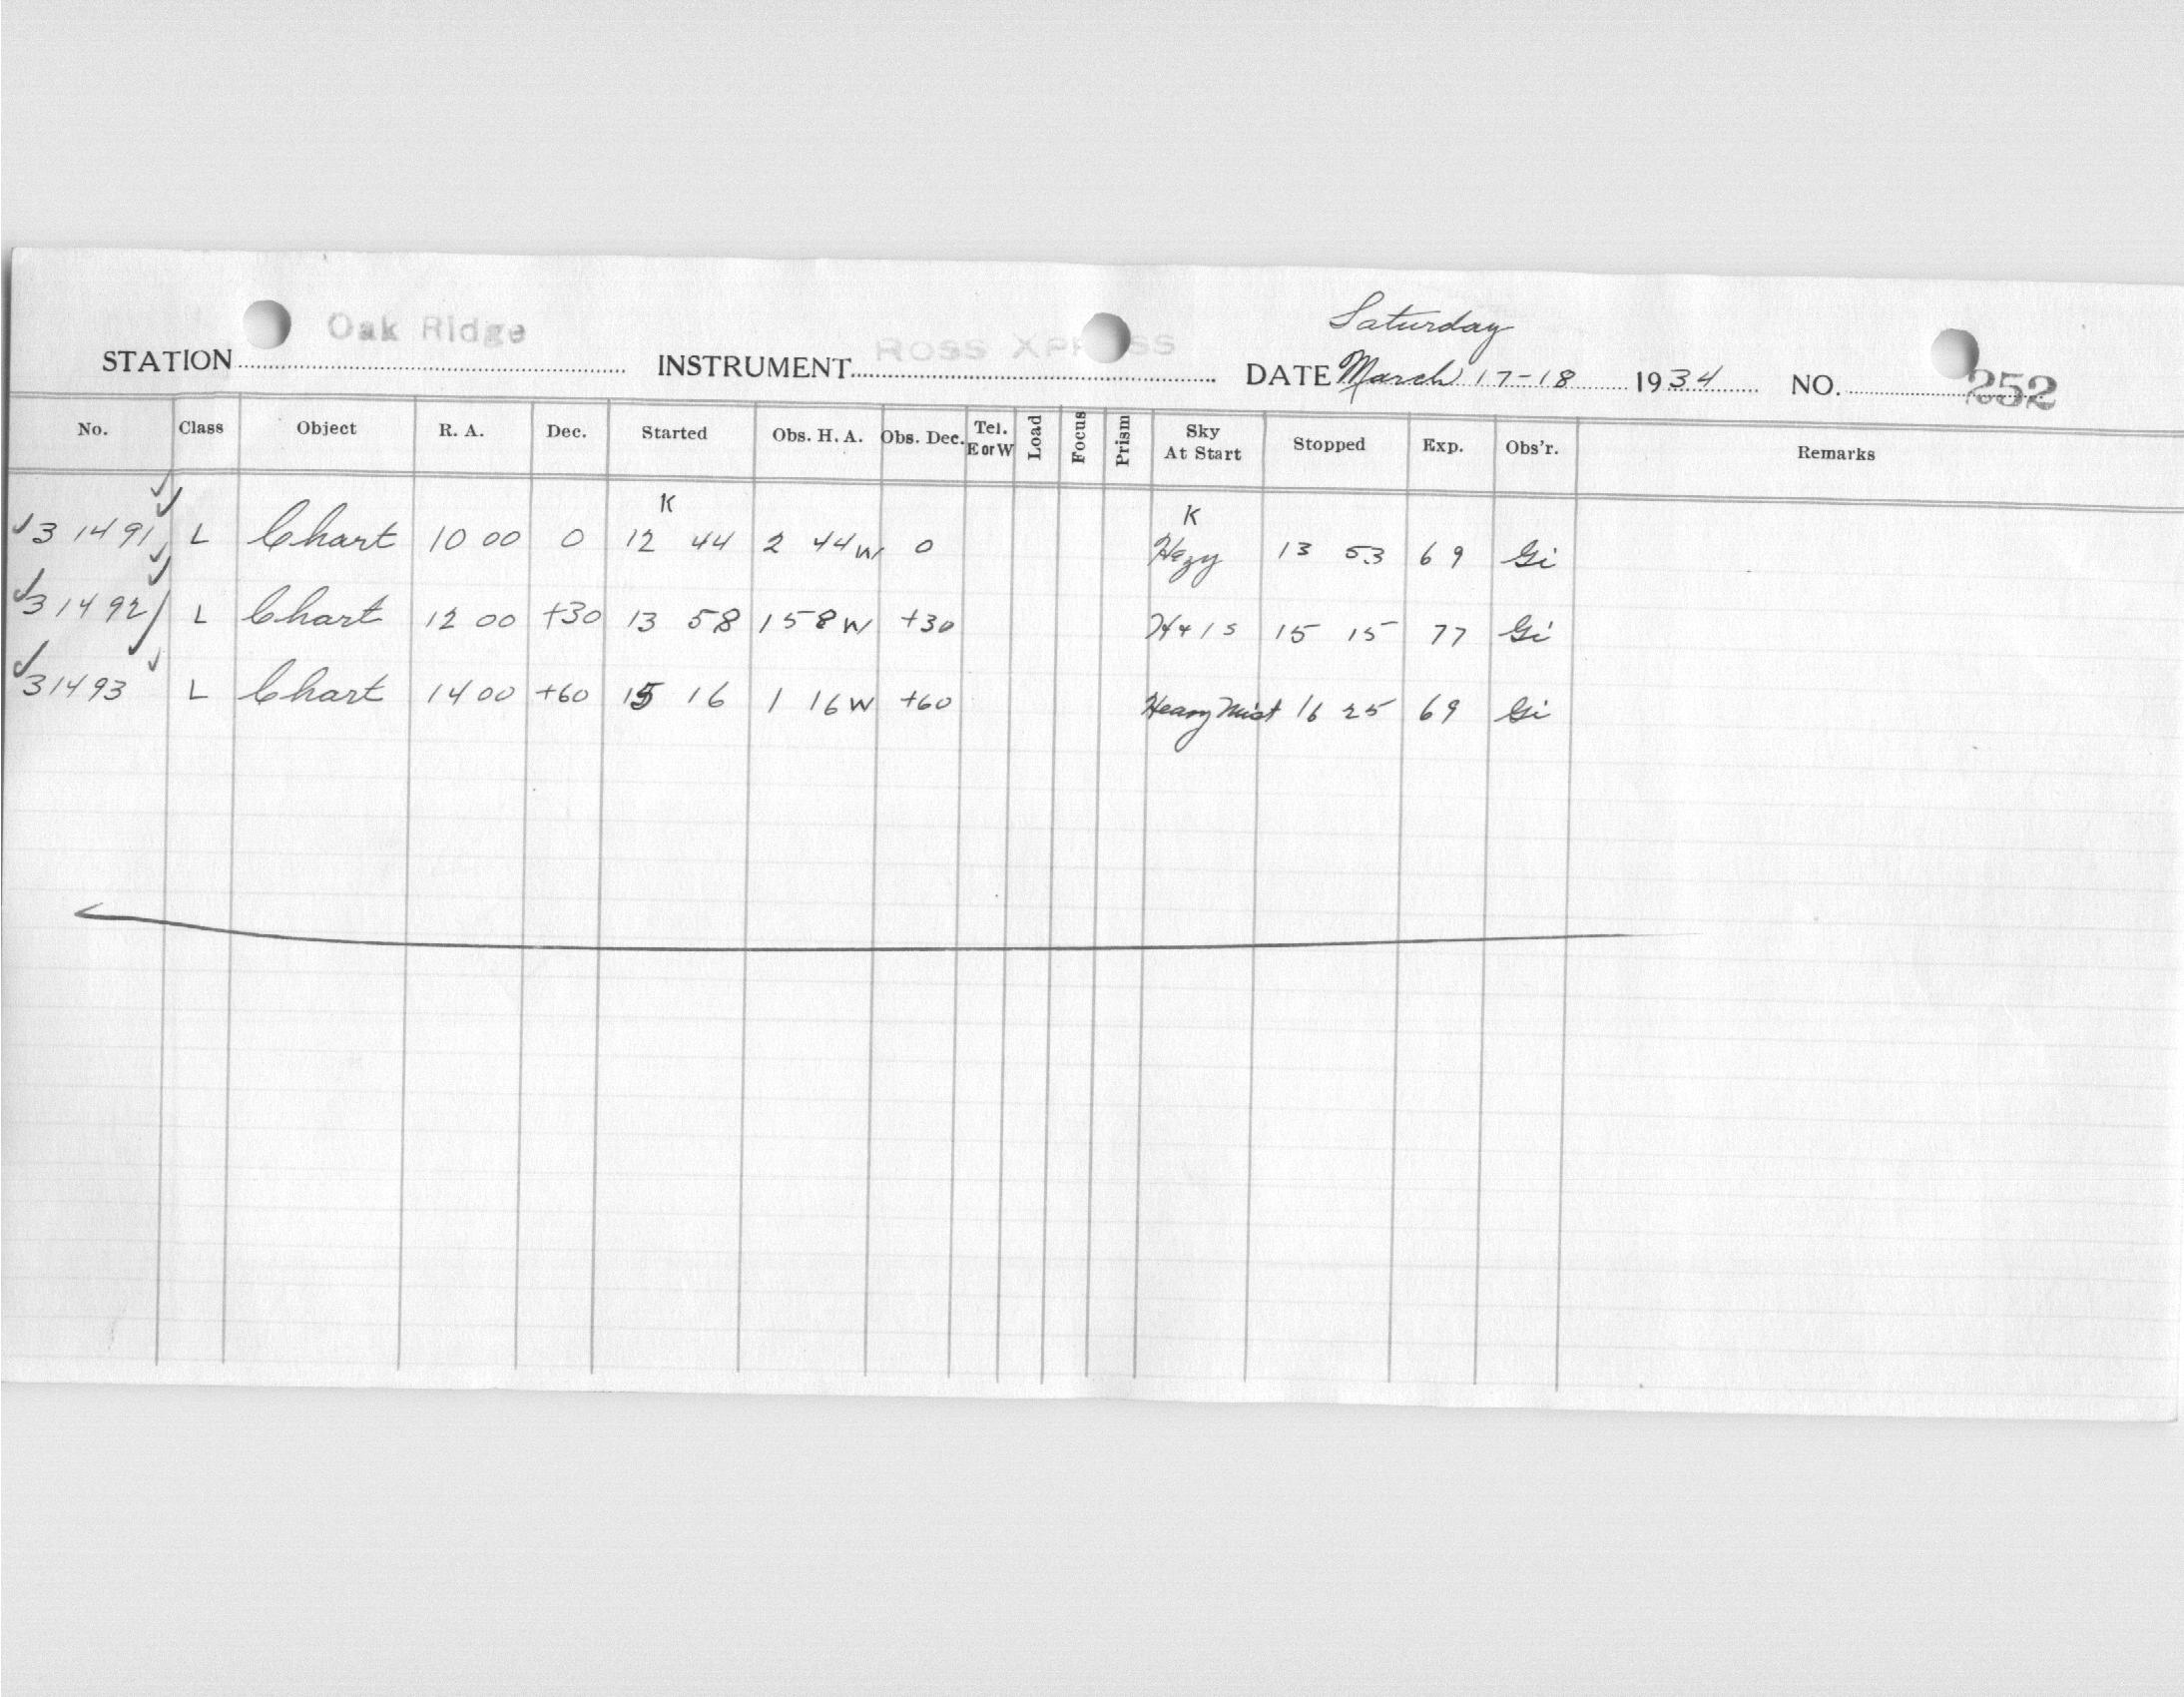 Saturday
STATION Oak Ridge INSTRUMENT ROSS XPRESS DATE March 17-18 1934 NO. 252
No. Class Object R. A. Dec. Started Obs. H. A. Obs. Dec. Tel. E or W Load Focus Prism Sky At Start Stopped Exp. Obs'r. Remarks
K K
✓31491 L Chart 10 00 0 12 44 2 44 W 0 Hazy 13 53 69 Gi
✓31492 L Chart 12 00 +30 13 58 1 58 W +30 15 15 77 Gi
✓31493 L Chart 14 00 +60 15 16 1 16 W +60 Heavy Mist 16 25 69 Gi